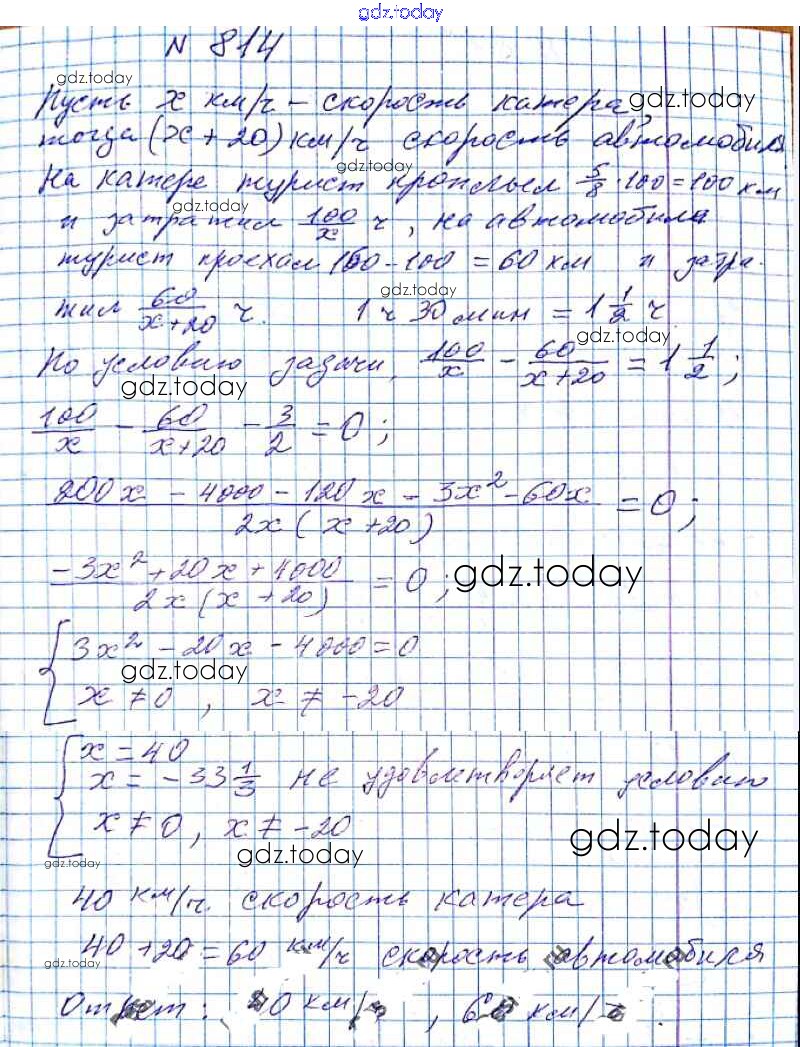 gdz.today
N 814
gdz.today
Пусть x км/ч – скорость катера, gdz.today
тогда (x + 20) км/ч скорость автомобиля
gdz.today
На катере турист проплыл 5/8 · 100 = 100 км
gdz.today
и затратил 100/x ч, на автомобиле
турист проехал 160 - 100 = 60 км и затра-
gdz.today
тил 60/x+20 ч. 1 ч 30 мин = 1 1/2 ч
gdz.today
По условию задачи, 100/x - 60/x+20 = 1 1/2 ;
gdz.today
100/x - 60/x+20 - 3/2 = 0 ;
200x - 4000 - 120x - 3x² - 60x / 2x(x+20) = 0 ;
-3x² + 20x + 4000 / 2x(x+20) = 0 ; gdz.today
{ 3x² - 20x - 4000 = 0
gdz.today
x ≠ 0 , x ≠ -20
{ x = 40
x = -33 1/3 не удовлетворяет условию
x ≠ 0 , x ≠ -20
gdz.today
gdz.today
gdz.today
40 км/ч. скорость катера
40 + 20 = 60 км/ч скорость автомобиля
gdz.today
Ответ: 40 км/ч , 60 км/ч .